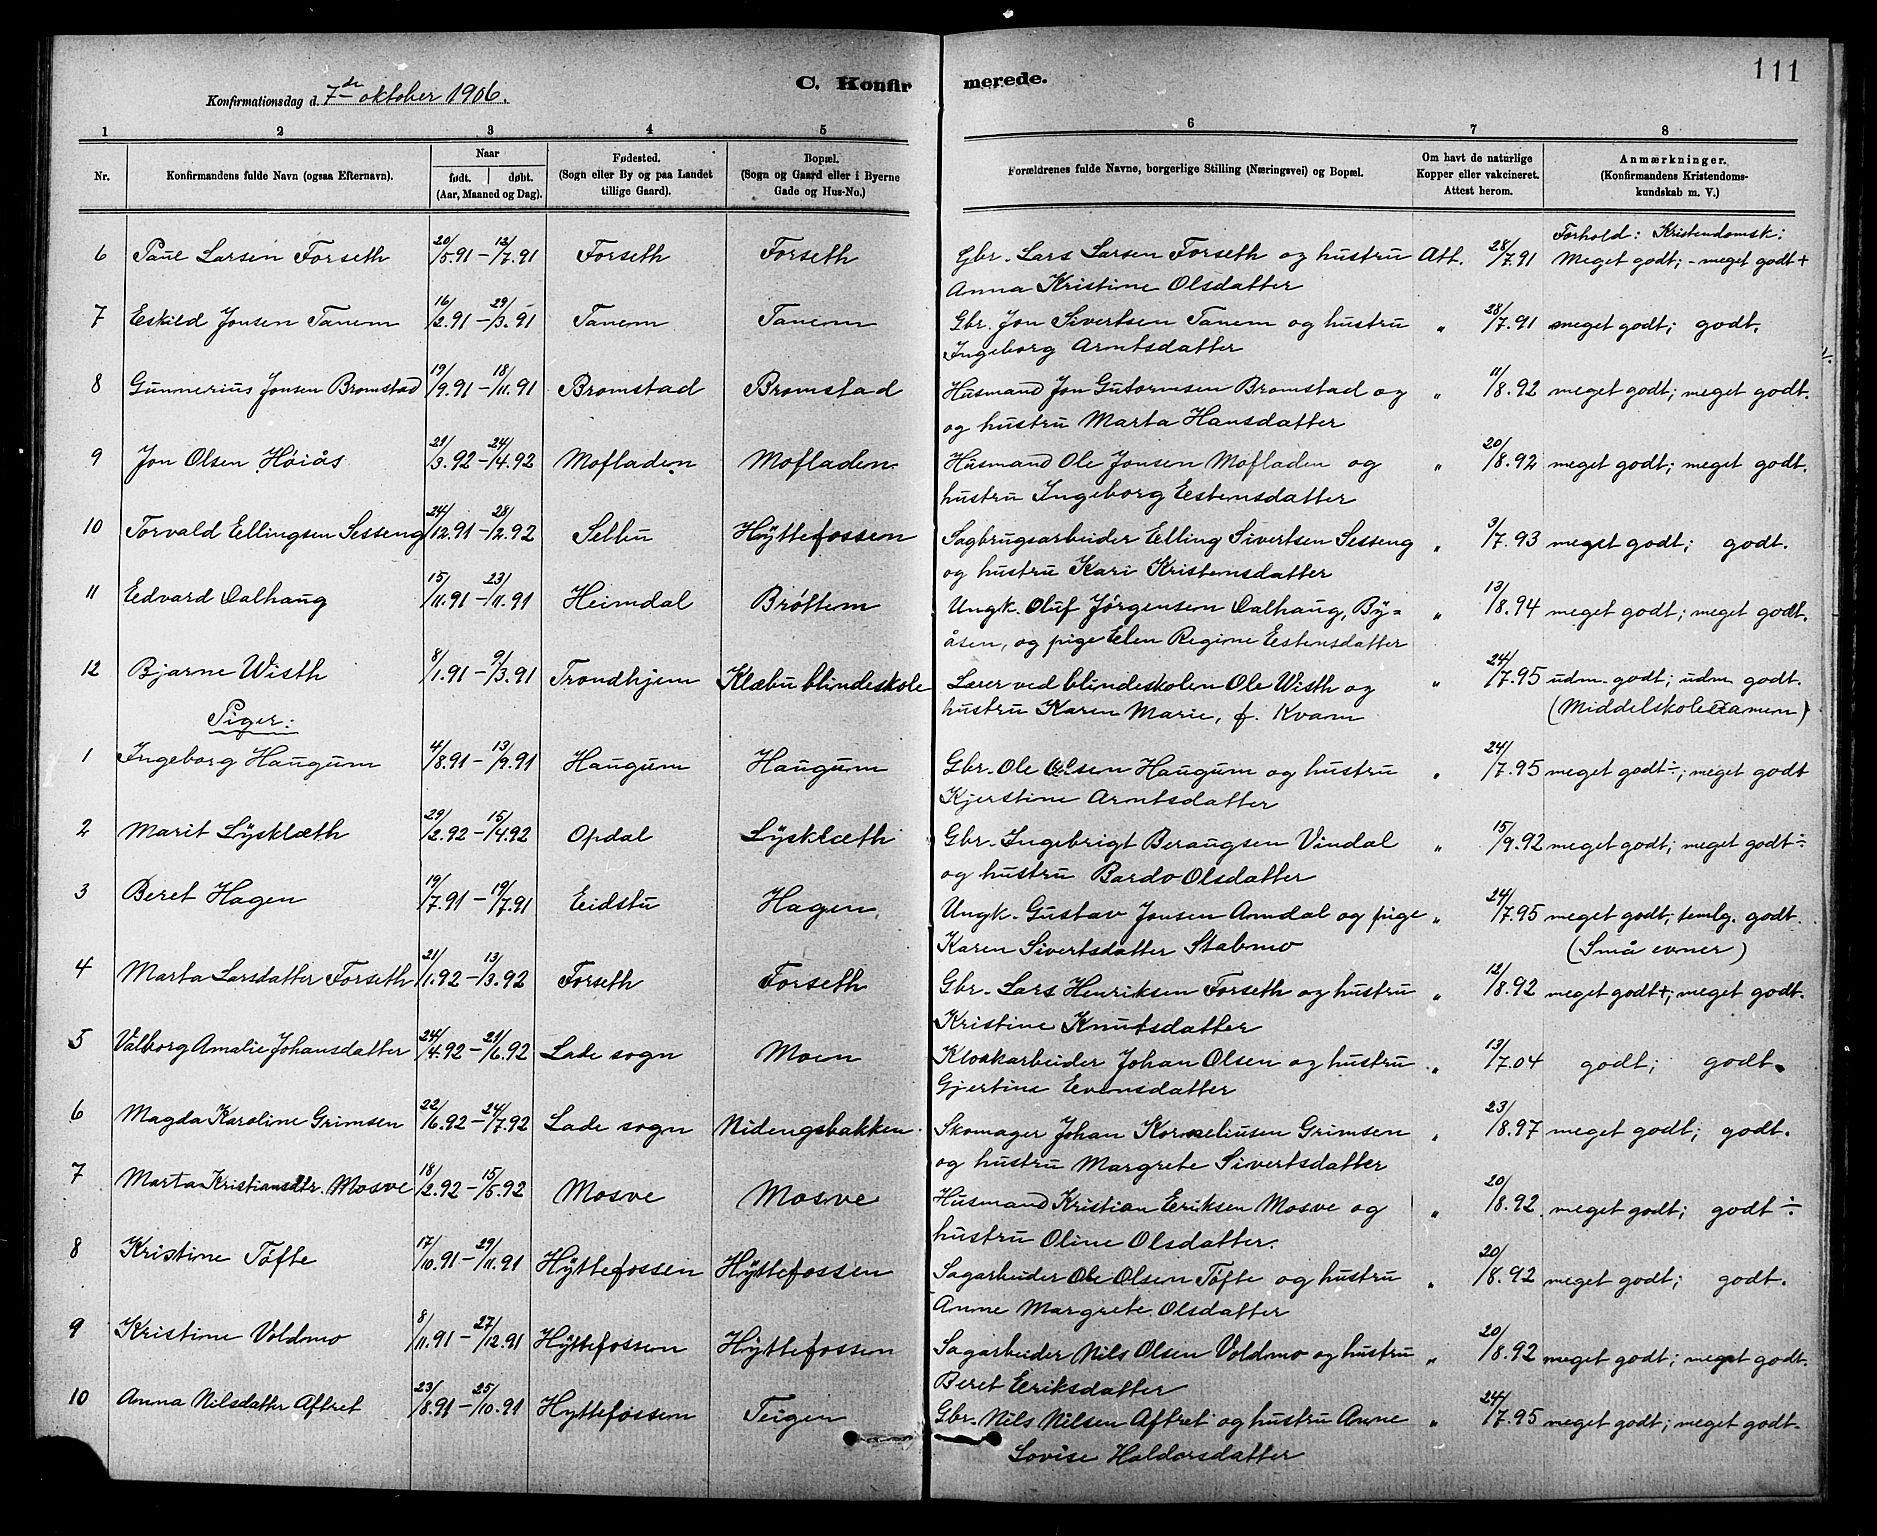 Konfirmationsdag d. 7de oktober 1906.
C. Konfirmerede.
111
1 2 3 4 5 6 7 8
Nr. | Konfirmandens fulde Navn (ogsaa Efternavn). | Naar født. døbt. (Aar, Maaned og Dag). | Fødested. (Sogn eller By og paa Landet tillige Gaard). | Bopæl. (Sogn og Gaard eller i Byerne Gade og Hus-No.) | Forældrenes fulde Navne, borgerlige Stilling (Næringsvei) og Bopæl. | Om havt de naturlige Kopper eller vakcineret. Attest herom. | Anmærkninger. (Konfirmandens Kristendomskundskab m. V.)
Forhold: Kristendomsk:
6 Paul Larsen Forseth 20/5.91 – 12/7.91 Forseth Forseth Gbr. Lars Larsen Forseth og hustru Att. 28/7.91 Meget godt; - meget godt +
Anna Kristine Olsdatter
7 Eskild Jonsen Tanem 16/2.91 – 29/3.91 Tanem Tanem Gbr. Jon Sivertsen Tanem og hustru " 28/7.91 meget godt; godt.
Ingeborg Arntsdatter
8 Gunnerius Jonsen Bromstad 19/9.91 – 18/11.91 Bromstad Bromstad Husmand Jon Gutormsen Bromstad og " 11/8.92 meget godt; meget godt.
og hustru Marta Hansdatter
9 Jon Olsen Høiås 21/3.92 – 24/4.92 Mofladen Mofladen Husmand Ole Jonsen Mofladen og " 20/8.92 meget godt; meget godt.
hustru Ingeborg Estensdatter
10 Torvald Ellingsen Sesseng 24/12.91 – 28/2.92 Selbu Hÿttefossen Sagbrugsarbeider Elling Sivertsen Sesseng " 3/7.93 meget godt; godt.
og hustru Kari Kristensdatter
11 Edvard Dalhaug 15/11.91 – 23/11.91 Heimdal Brøttem Ungk. Oluf Jørgensen Dalhaug, By- " 13/8.94 meget godt; meget godt.
åsen, og pige Elen Regine Estensdatter
12 Bjarne Wisth 8/1.91 – 9/3.91 Trondhjem Klæbu blindeskole Lærer ved blindeskolen Ole Wisth og " 24/7.95 udm. godt; udm. godt.
hustru Karen Marie, f. Kvam (Middelskoleexamen)
Piger:
1 Ingeborg Haugum 4/8.91 – 13/9.91 Haugum Haugum Gbr. Ole Olsen Haugum og hustru " 24/7.95 meget godt÷; meget godt
Kjerstine Arntsdatter
2 Marit Lÿsklæth 29/2.92 – 15/4.92 Opdal Lÿsklæth Gbr. Ingebrigt Beraugsen Vindal " 15/9.92 meget godt; meget godt÷
og hustru Bardo Olsdatter
3 Beret Hagen 19/7.91 – 19/7.91 Eidstu Hagen Ungk. Gustav Jonsen Amdal og pige " 24/7.95 meget godt; temlg. godt.
Karen Sivertsdatter Stabmo (Små evner)
4 Marta Larsdatter Forseth 21/1.92 – 13/3.92 Forseth Forseth Gbr. Lars Henriksen Forseth og hustru " 12/8.92 meget godt+; meget godt.
Kristine Knutsdatter
5 Valborg Amalie Johansdatter 24/4.92 – 21/6.92 Lade sogn Moen Kloakarbeider Johan Olsen og hustru " 13/7.04 godt; godt.
Gjertine Evensdatter
6 Magda Karoline Grimsen 22/6.92 – 24/7.92 Lade sogn Nidengsbakken Skomager Johan Korneliusen Grimsen " 23/8.97 meget godt; godt.
og hustru Margrete Sivertsdatter
7 Marta Kristiansdtr Mosve 18/2.92 – 15/5.92 Mosve Mosve Husmand Kristian Eriksen Mosve og " 20/8.92. meget godt; godt ÷
hustru Oline Olsdatter.
8 Kristine Tøfte 17/10.91 – 29/11.91 Hÿttefossen Hÿttefossen Sagarbeider Ole Olsen Tøfte og hustru " 20/8.92 meget godt; godt.
Anne Margrete Olsdatter
9 Kristine Voldmo 8/11.91 – 27/12.91 Hÿttefossen Hÿttefossen Sagarbeider Nils Olsen Voldmo og hustru " 20/8.92 meget godt; meget godt.
Beret Eriksdatter
10 Anna Nilsdatter Aftret 23/8.91 – 25/10.91 Hyttefossen Teigen Gbr. Nils Nilsen Aftret og hustru Anne " 24/7.95 meget godt; meget godt.
Lovise Haldorsdatter